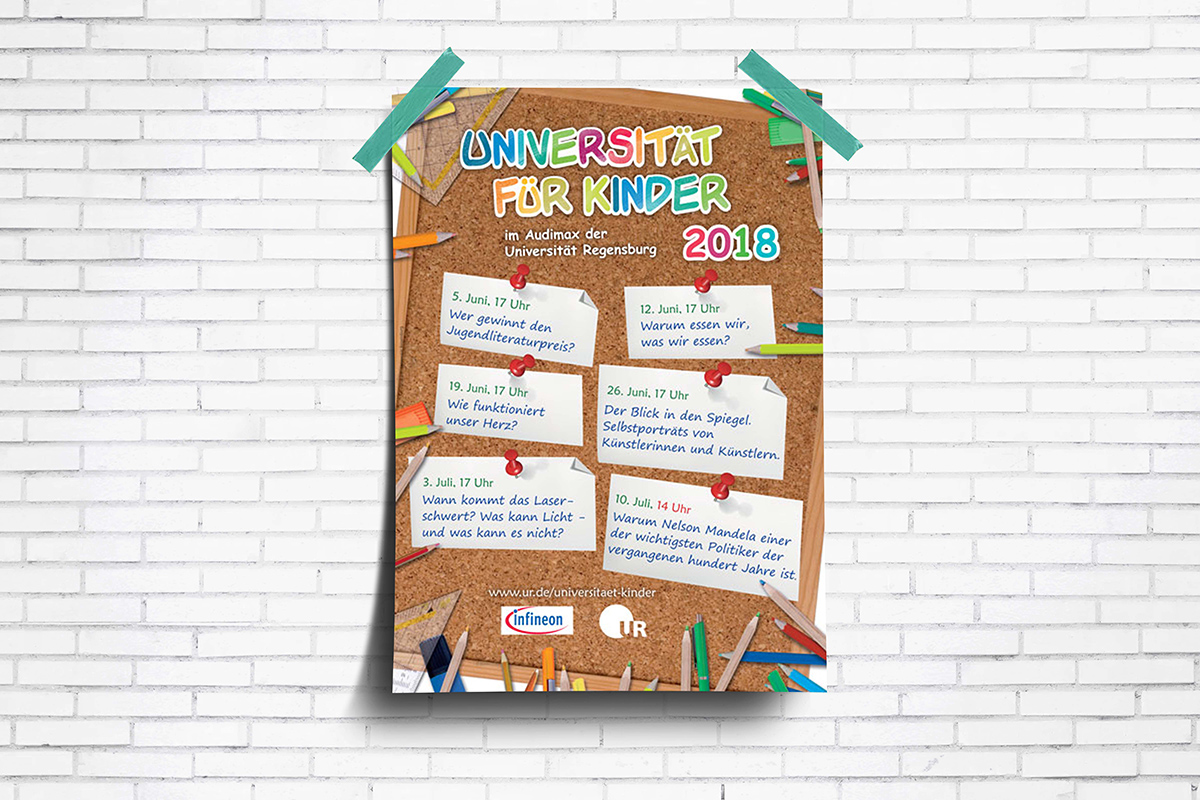 UNIVERSITÄT
FÜR KINDER
im Audimax der
Universität Regensburg
2018
5. Juni, 17 Uhr
Wer gewinnt den
Jugendliteraturpreis?
12. Juni, 17 Uhr
Warum essen wir,
was wir essen?
19. Juni, 17 Uhr
Wie funktioniert
unser Herz?
26. Juni, 17 Uhr
Der Blick in den Spiegel.
Selbstporträts von
Künstlerinnen und Künstlern.
3. Juli, 17 Uhr
Wann kommt das Laser-
schwert? Was kann Licht -
und was kann es nicht?
10. Juli, 14 Uhr
Warum Nelson Mandela einer
der wichtigsten Politiker der
vergangenen hundert Jahre ist.
www.ur.de/universitaet-kinder
infineon
UR